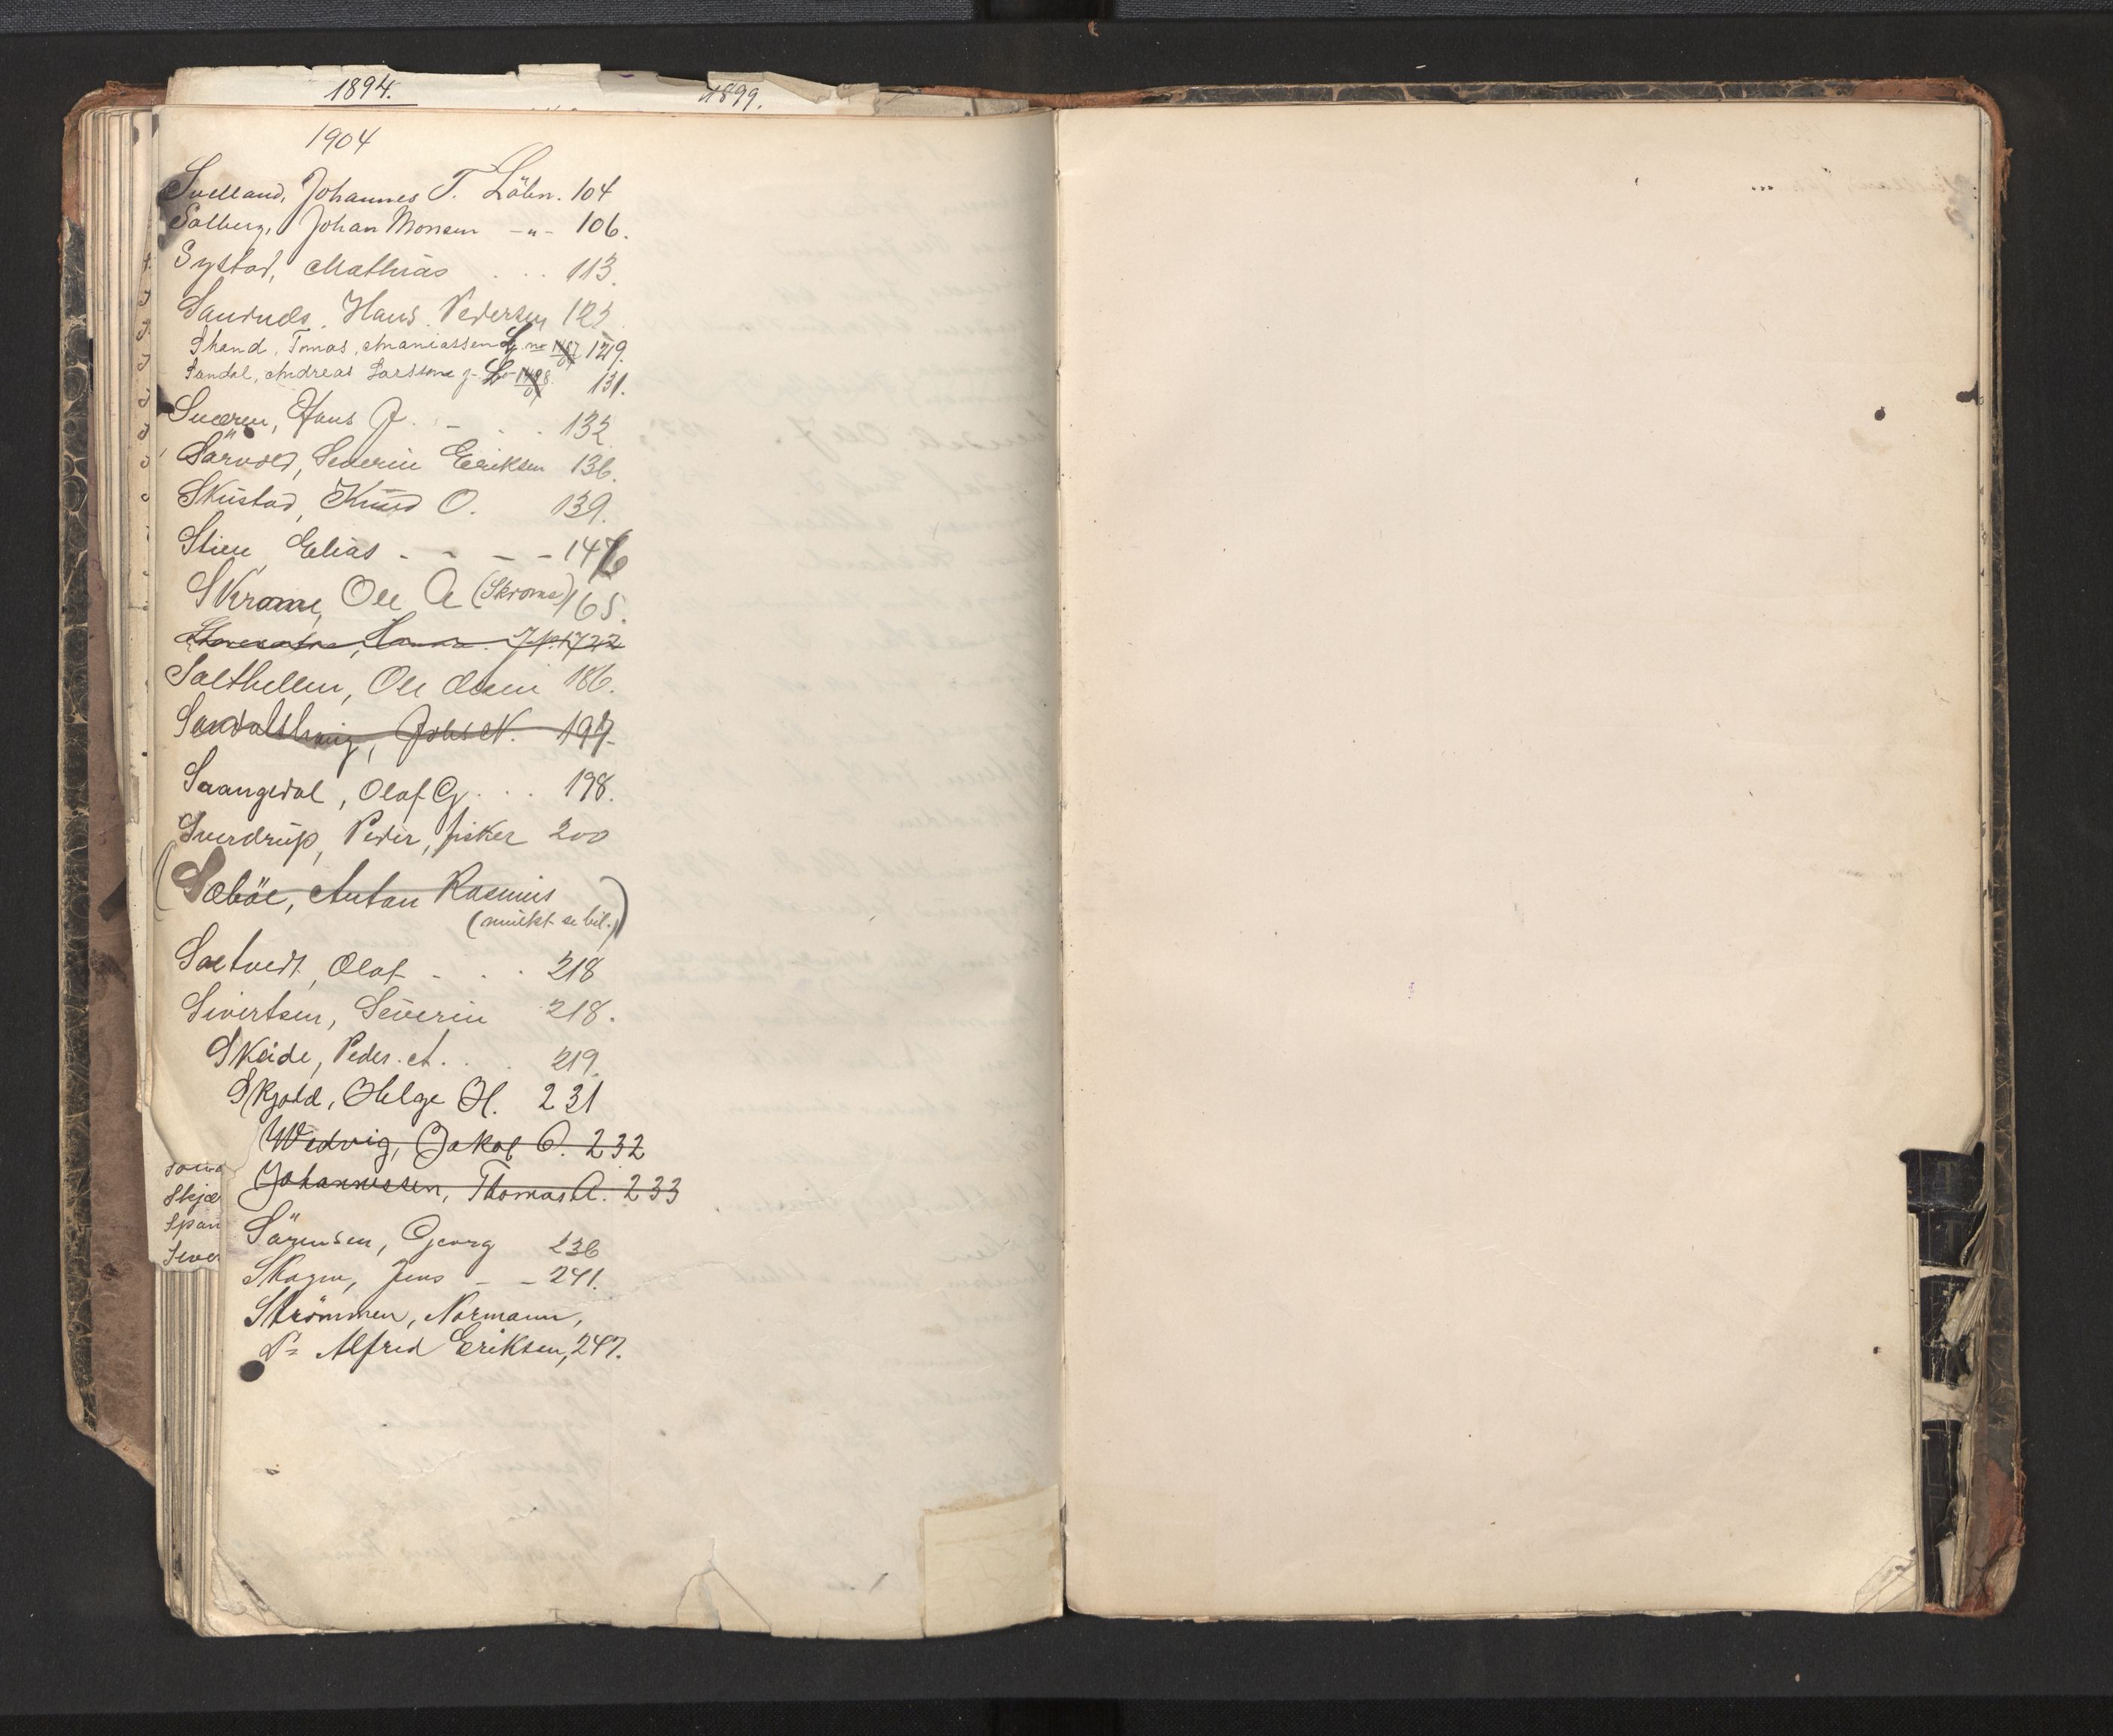 1894. 1899.
1904
Svelland, Johannes T. Löbn. 104
Solberg, Johan Monsen -"- 106.
Systad, Mathias . . . 113.
Sandnes, Hans Pedersen 123
Strand, Tomas, Ananiassen 129.
Sandal, Andreas Larssen 131.
Sværen, Hans J. - . . 132.
Sörvold, Severin Eriksen 136.
Skustad, Knud O. 139.
Stien, Elias - - - - 146
Skrame, Ole A (Skrome) 165.
Salthellen, Ole Olsen 186.
Sandalshaug, Johs N. 197.
Saangedal, Olaf G . . . 198.
Sverdrup, Peder, fisker 200
(Sæböe, Anton Rasmus
(mulkt se bil.))
Sætvedt, Olaf - . . 218
Sivertsen, Severin 218.
Skeide, Peder A. . . 219.
Skjold, Helge H. 231
Wedvig, Jakob O. 232
Johannessen, Thomas A. 233
Skjæ
Span
Siver
Sörensen, Georg 236
Skagen, Jens - - 241.
Strömmen, Normann,
D= Alfred Eriksen, 247.